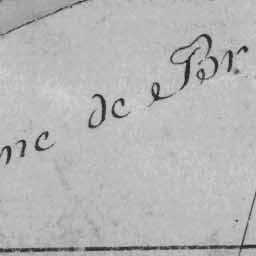 ne de Br